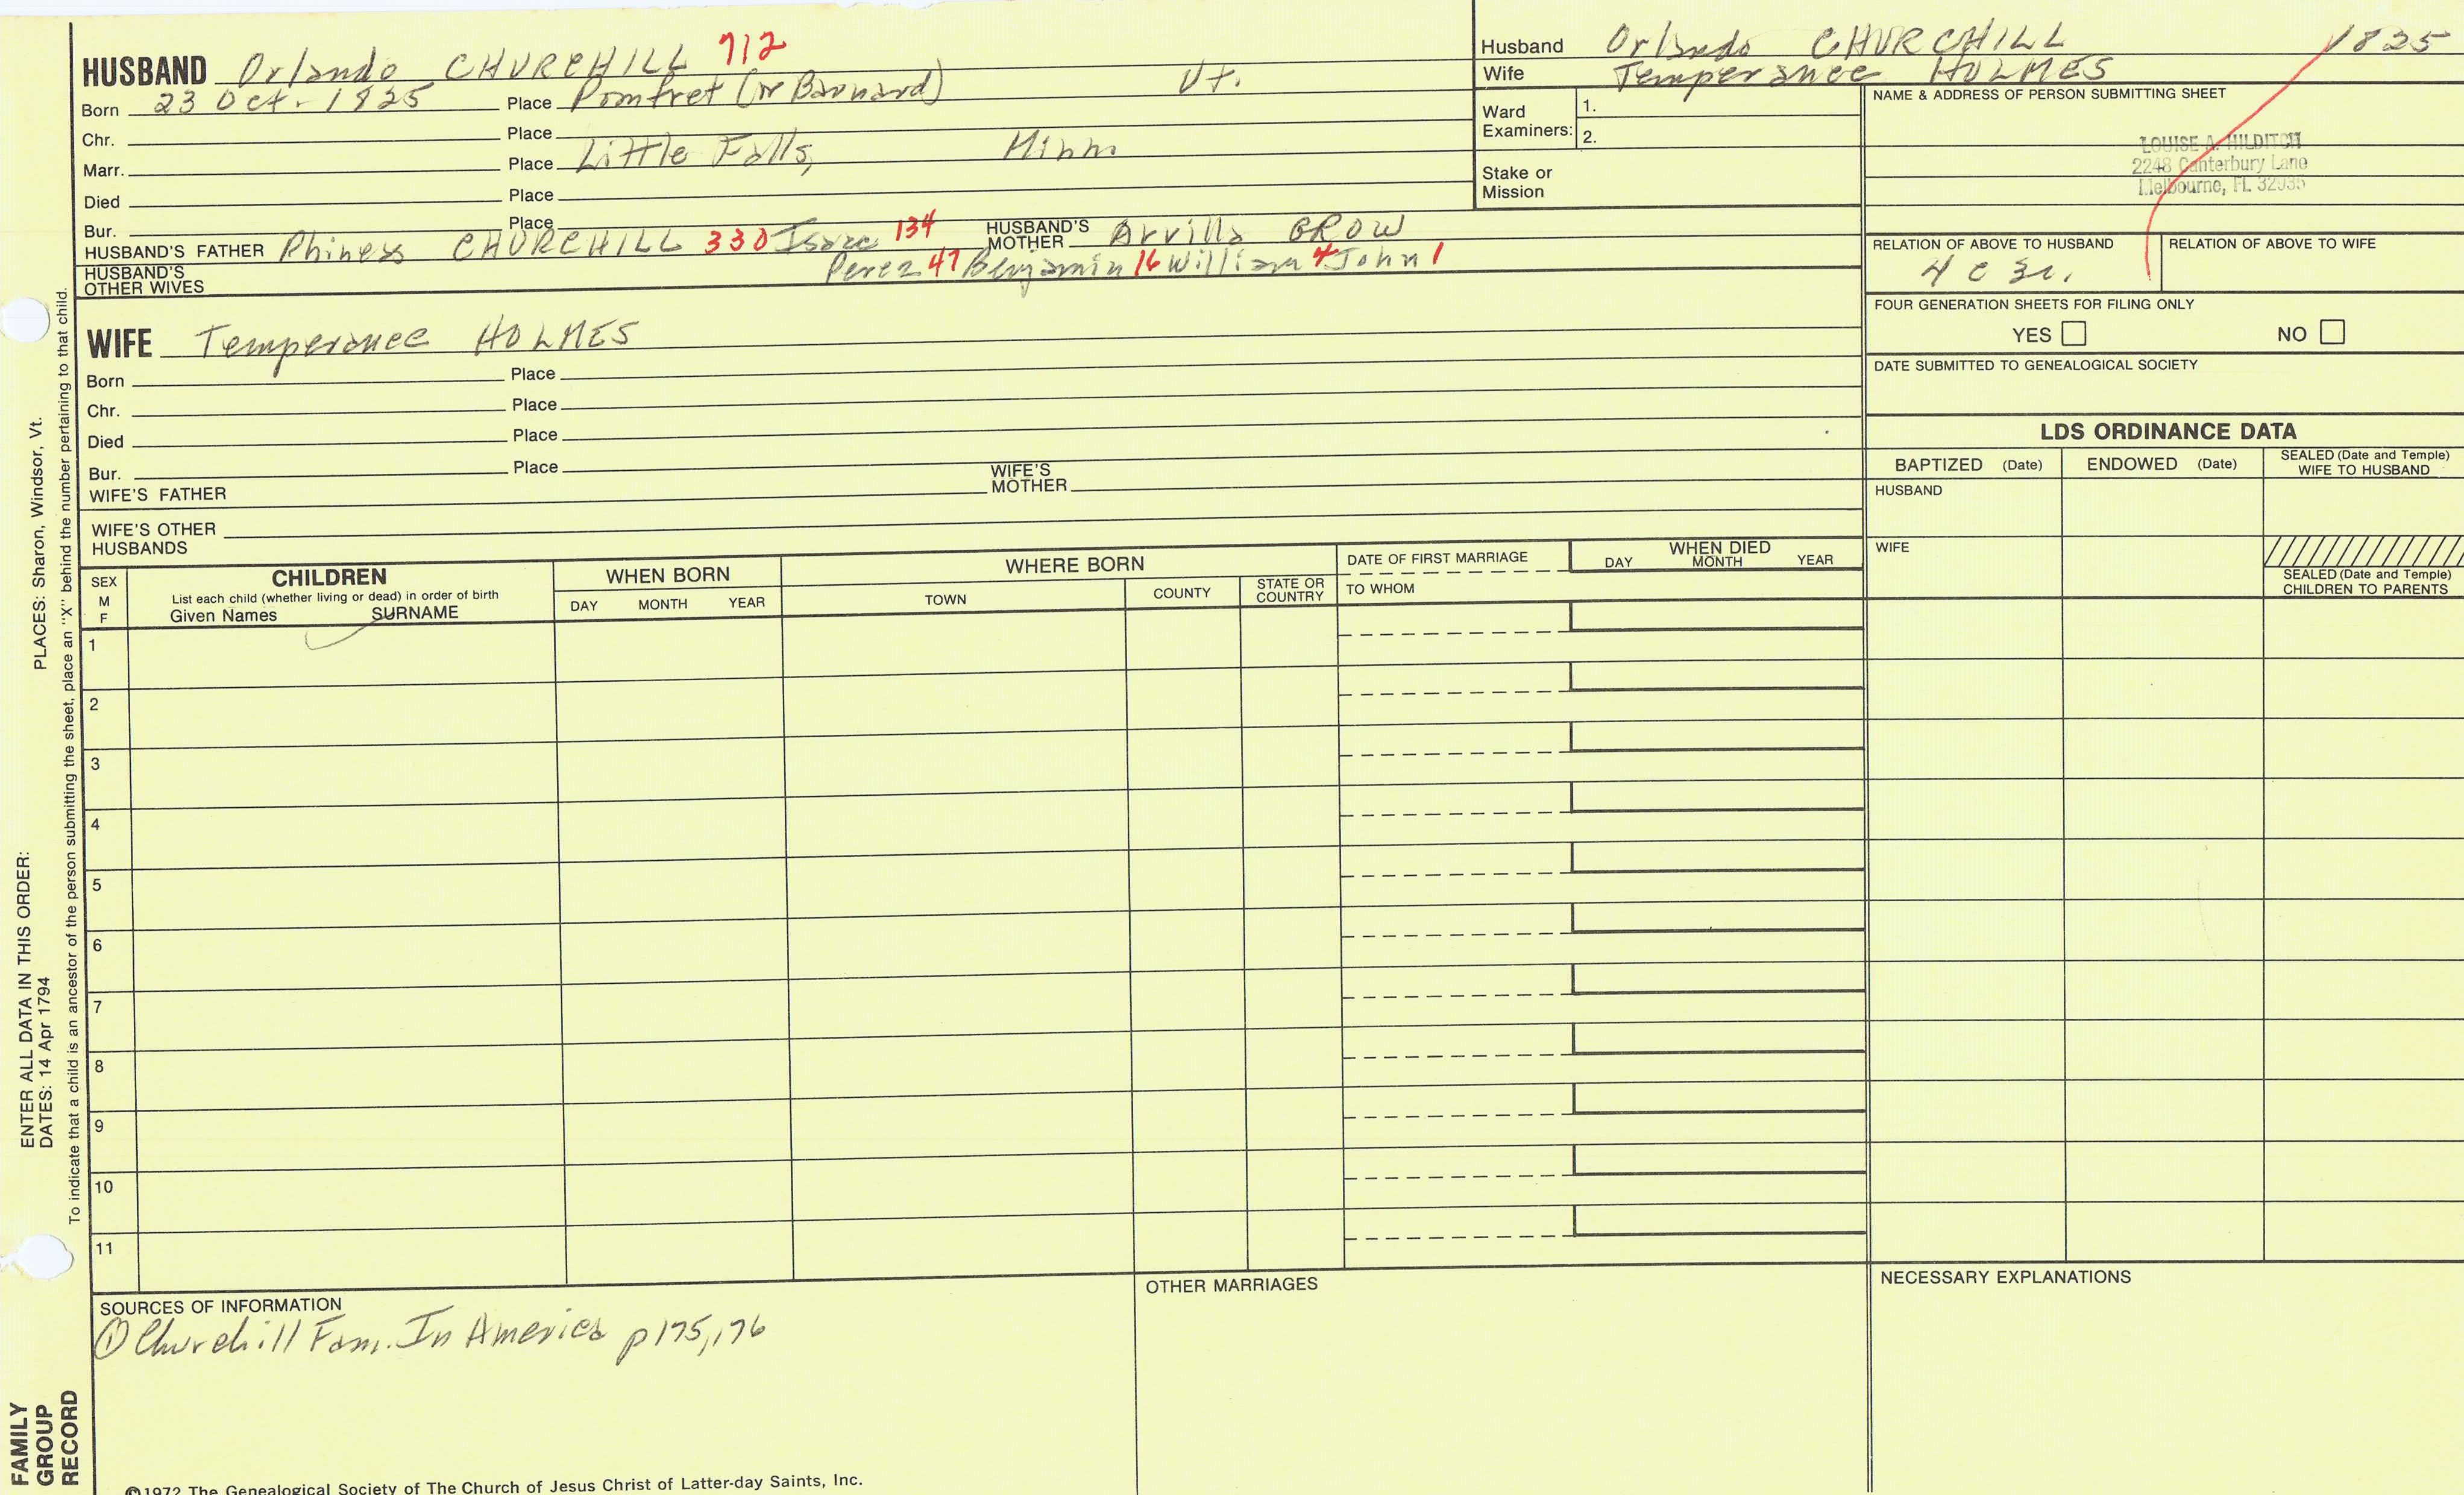 HUSBAND Orlando CHURCHILL 712
Born 23 Oct - 1825 Place Pomfret (or Barnard) Vt.
Chr. Place
Marr. Place Little Falls, Minn
Died Place
Bur. Place
HUSBAND'S FATHER Phineas CHURCHILL 330 Isaac 134 HUSBAND'S MOTHER Arvilla GROW
Perez 47 Benjamin 16 William 4 John 1
HUSBAND'S OTHER WIVES
WIFE Temperance HOLMES
Born Place
Chr. Place
Died Place
Bur. Place
WIFE'S FATHER WIFE'S MOTHER
WIFE'S OTHER HUSBANDS
Husband Orlando CHURCHILL 1825
Wife Temperance HOLMES
Ward Examiners: 1.
2.
Stake or Mission
NAME & ADDRESS OF PERSON SUBMITTING SHEET
LOUISE A. HILDITCH
2248 Canterbury Lane
Melbourne, FL 32935
RELATION OF ABOVE TO HUSBAND RELATION OF ABOVE TO WIFE
4 c 3r.
FOUR GENERATION SHEETS FOR FILING ONLY
YES NO
DATE SUBMITTED TO GENEALOGICAL SOCIETY
LDS ORDINANCE DATA
BAPTIZED (Date) ENDOWED (Date) SEALED (Date and Temple) WIFE TO HUSBAND
HUSBAND
WIFE
SEALED (Date and Temple) CHILDREN TO PARENTS
SEX M F
CHILDREN
List each child (whether living or dead) in order of birth
Given Names SURNAME
WHEN BORN
DAY MONTH YEAR
WHERE BORN
TOWN COUNTY STATE OR COUNTRY
DATE OF FIRST MARRIAGE
TO WHOM
WHEN DIED
DAY MONTH YEAR
1
2
3
4
5
6
7
8
9
10
11
SOURCES OF INFORMATION
① Churchill Fam. In America p175,176
OTHER MARRIAGES
NECESSARY EXPLANATIONS
©1972 The Genealogical Society of The Church of Jesus Christ of Latter-day Saints, Inc.
FAMILY
GROUP
RECORD
ENTER ALL DATA IN THIS ORDER:
DATES: 14 Apr 1794 PLACES: Sharon, Windsor, Vt.
To indicate that a child is an ancestor of the person submitting the sheet, place an "X" behind the number pertaining to that child.